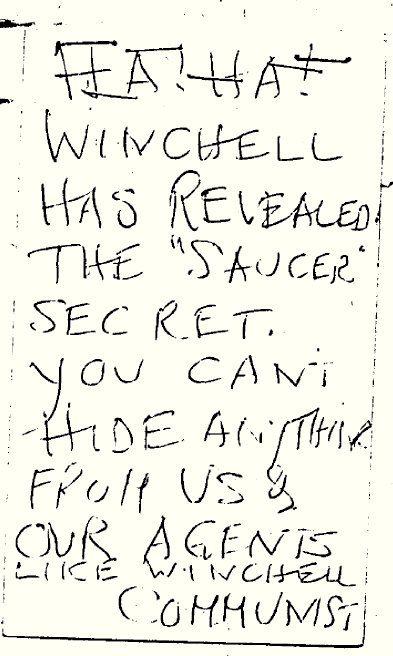 HA! HA!
WINCHELL
HAS REVEALED
THE "SAUCER"
SECRET.
YOU CANT
HIDE ANYTHING
FROM US &
OUR AGENTS
LIKE WINCHELL
COMMUNIST